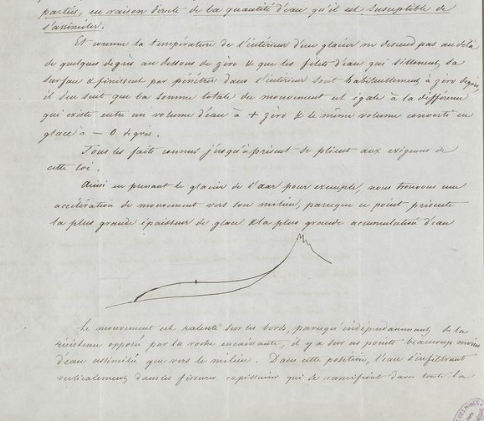 parties, en raison directe de la quantité d'eau qu'il est susceptible de
s'assimiler.
Et comme la température de l'intérieur d'un glacier ne descend pas au delà
de quelques degrés au dessous de zéro & que les filets d'eau qui sillonnent la
surface & finissent par pénétrer dans l'intérieur sont habituellement à zéro degrés,
il s'en suit que la somme totale du mouvement est égale à la différence
qui existe entre un volume d'eau à + zéro & le même volume converti en
glace à – 0 degrés.
Tous les faits connus jusqu'à présent se plient aux exigences de
cette loi.
Ainsi en prenant le glacier de l'aar pour exemple, nous trouvons une
accélération de mouvement vers son milieu, parceque ce point présente
la plus grande épaisseur de glace & la plus grande accumulation d'eau
Le mouvement est ralenti sur les bords, parceque indépendamment de la
résistance opposée par la roche encaissante, il y a sur ces points beaucoup moins
d'eau assimilée que vers le milieu. Dans cette position, l'eau s'infiltrant
verticalement dans les fissures capillaires qui se ramifient dans toute la